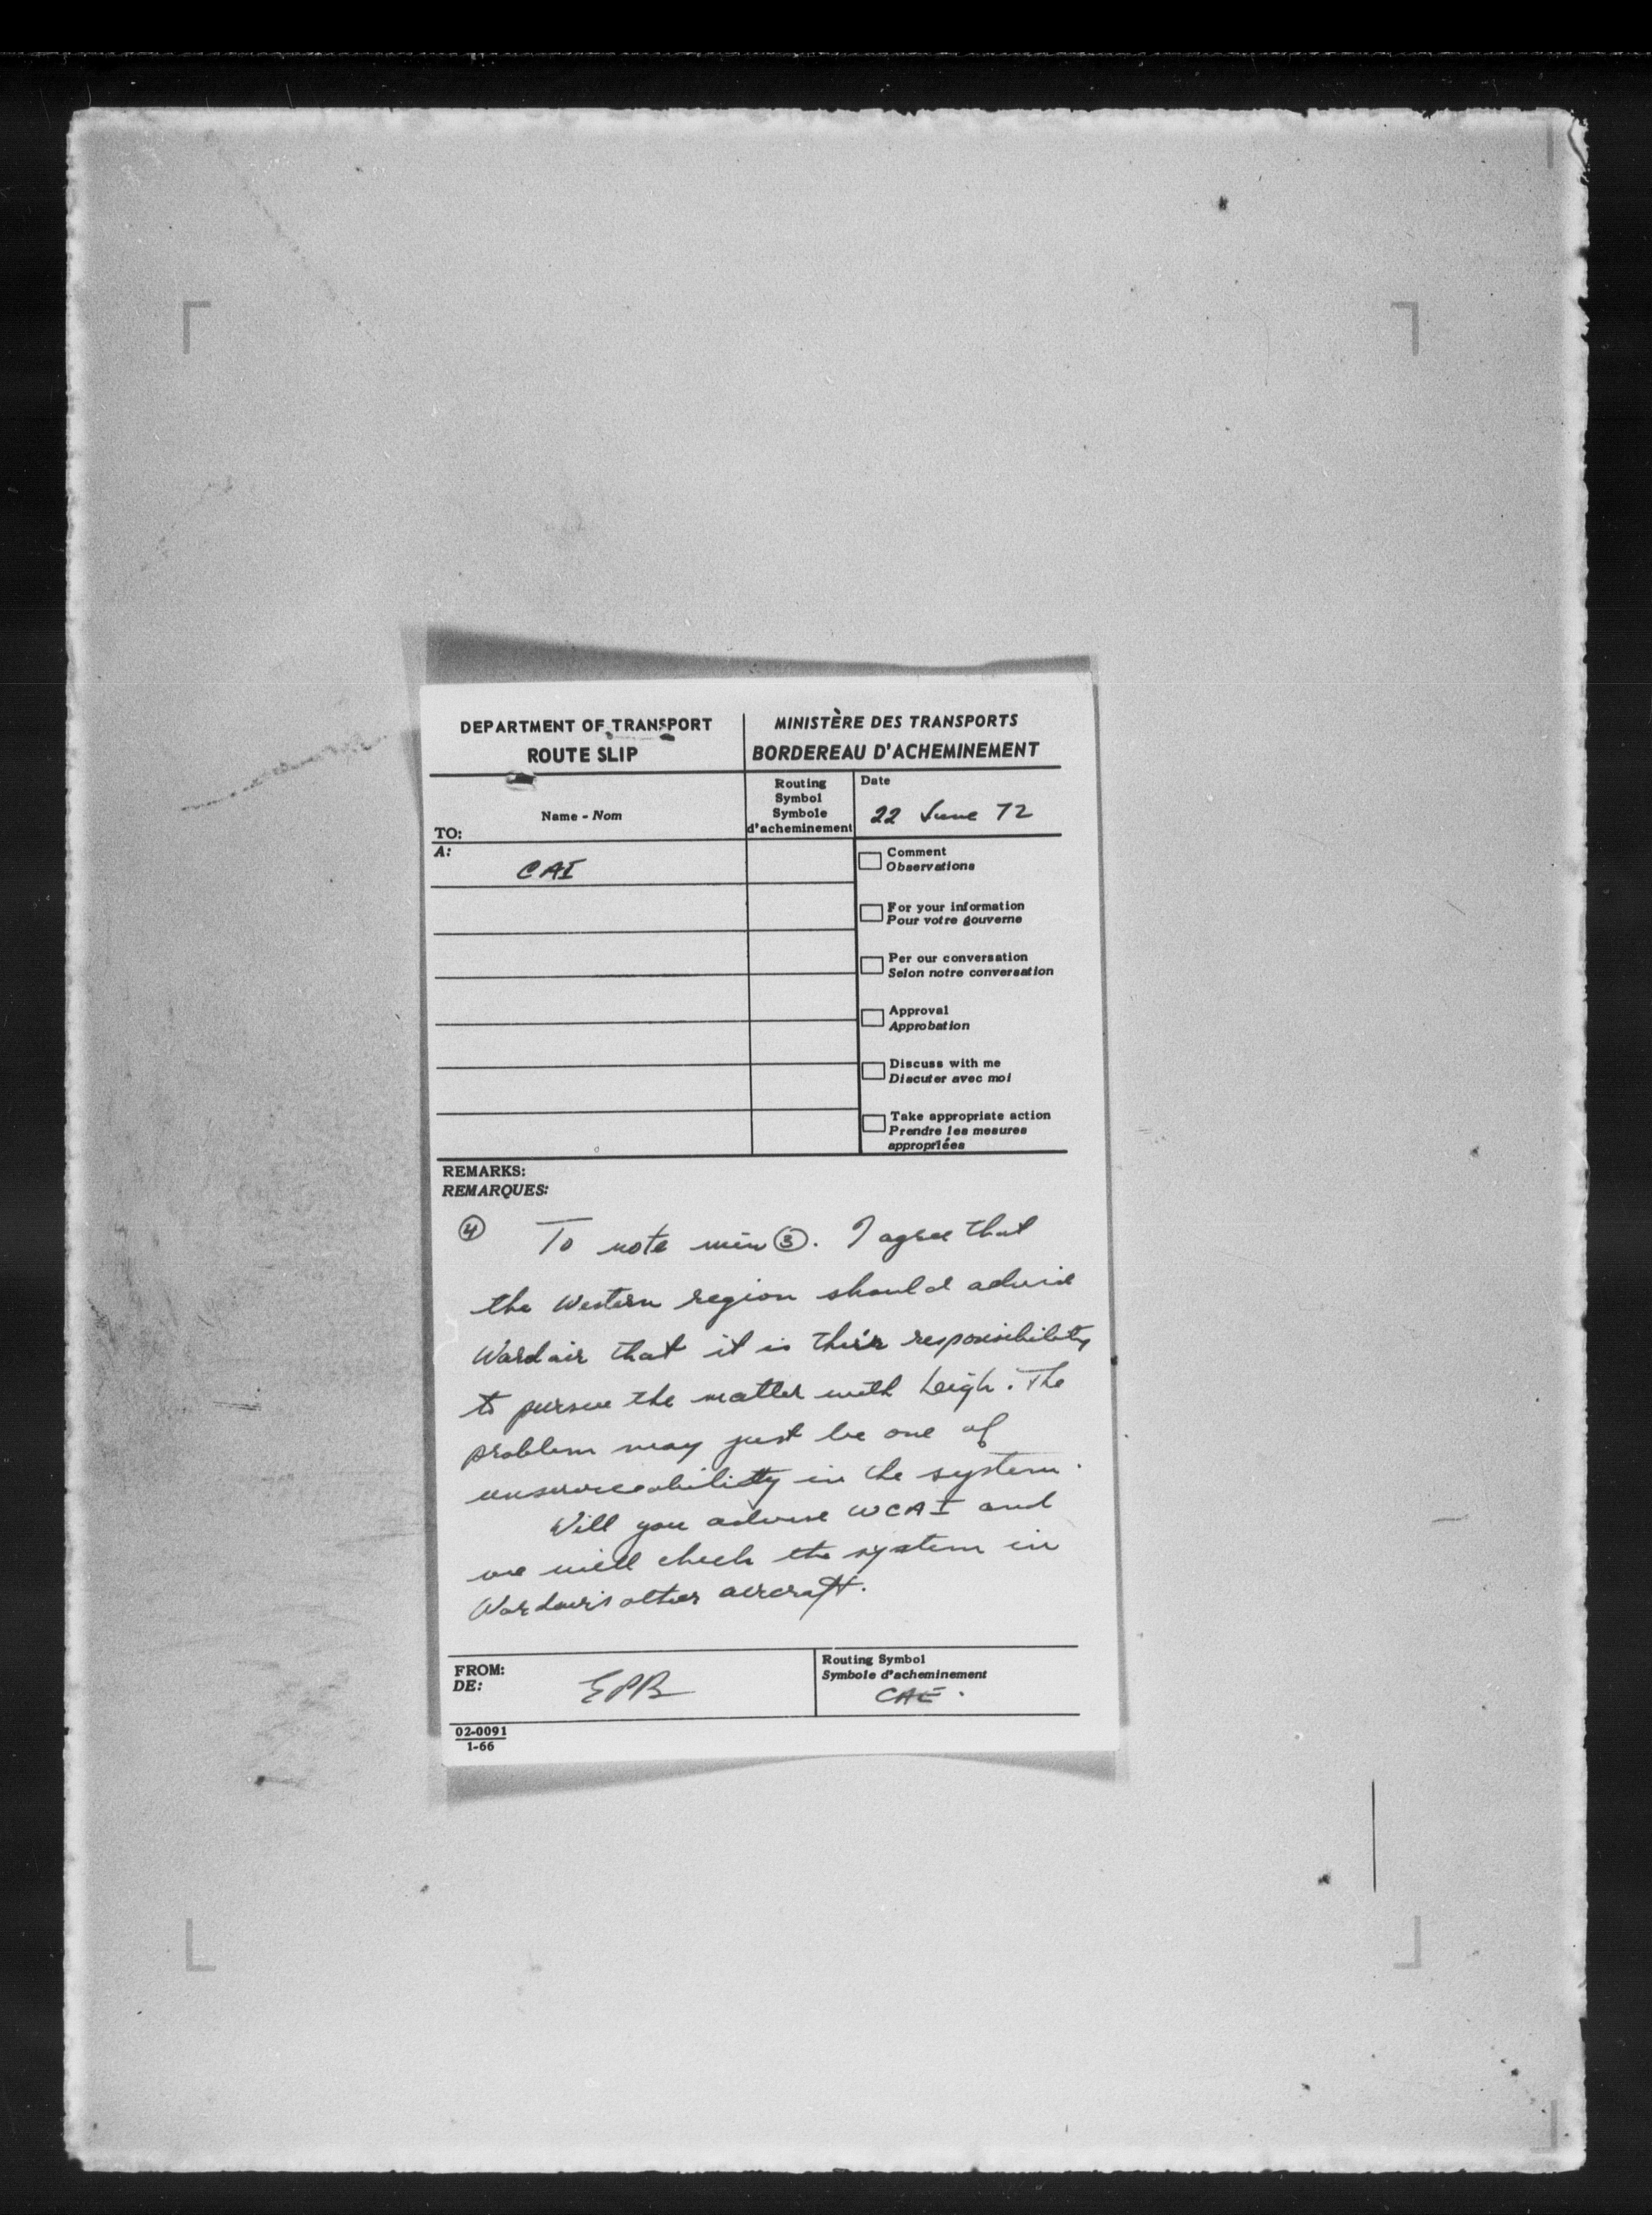 DEPARTMENT OF TRANSPORT
ROUTE SLIP
MINISTÈRE DES TRANSPORTS
BORDEREAU D'ACHEMINEMENT
Name - Nom
TO:
A:
Routing
Symbol
Symbole
d'acheminement
Date
22 June 72
CAI
Comment
Observations
For your information
Pour votre gouverne
Per our conversation
Selon notre conversation
Approval
Approbation
Discuss with me
Discuter avec moi
Take appropriate action
Prendre les mesures
appropriées
REMARKS:
REMARQUES:
④ To note min ③. I agree that
the Western region should advise
Wardair that it is their responsibility
to pursue the matter with Leigh. The
problem may just be one of
unserviceability in the system.
Will you advise WCAI and
we will check the system in
Wardair's other aircraft.
FROM:
DE:
EPB
Routing Symbol
Symbole d'acheminement
CAE.
02-0091
1-66